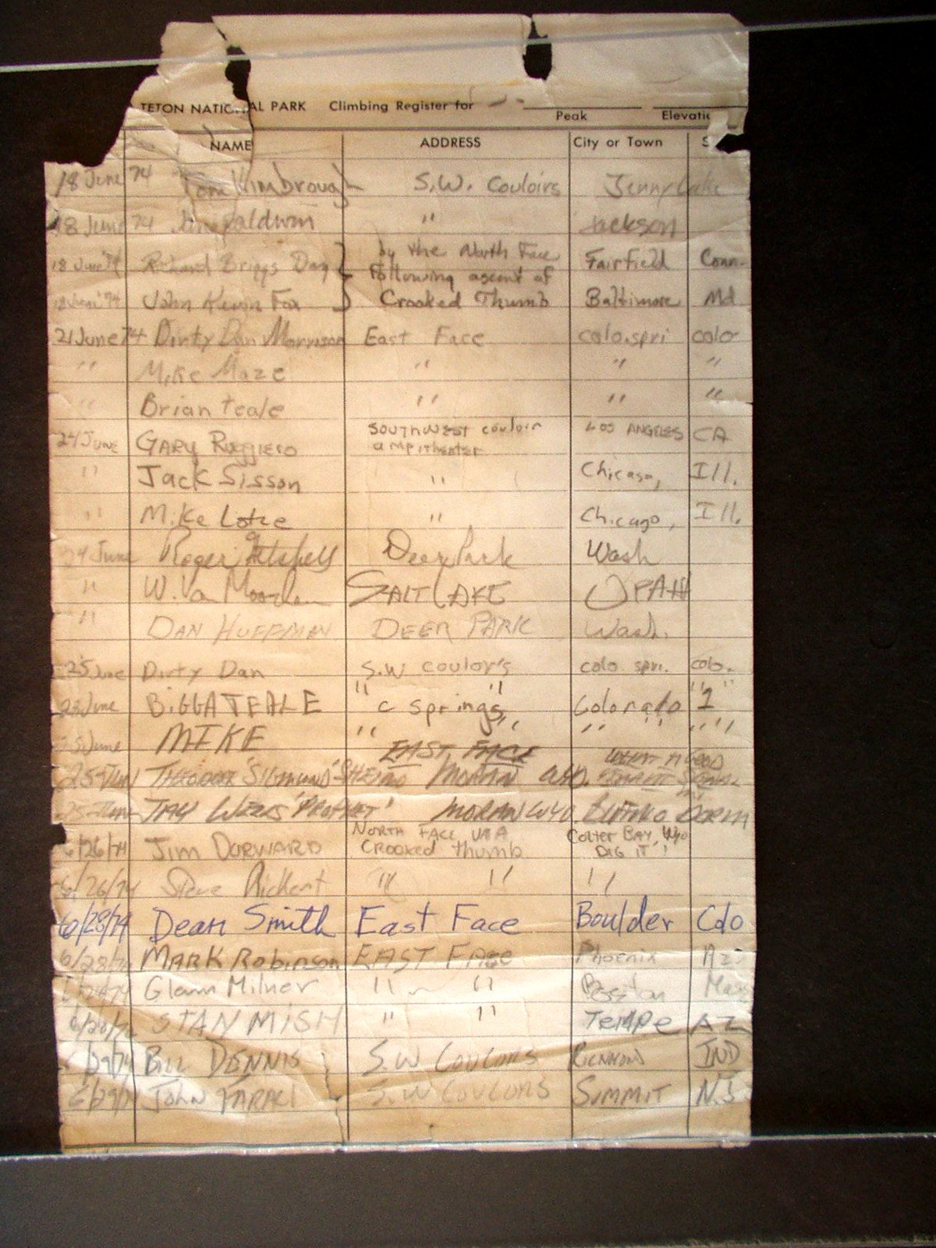 TETON NATIONAL PARK Climbing Register for
Peak Elevatio
NAME ADDRESS City or Town S
18 June 74 Tom Kimbrough } S.W. Couloirs Jenny Lake
18 June 74 Jim Baldwin " Jackson
18 June 74 Richard Briggs Day } by the North Face Fairfield Conn.
following ascent of
18 June 74 John Kevin Fox Crooked Thumb Baltimore Md
21 June 74 Dirty Dan Morrison East Face colo.spri colo
" Mike Maze " " "
" Brian teale " " "
24 June GARY Ruggiero SOUTHWEST couloir LOS ANGELES CA
ampitheater
" Jack Sisson " Chicago, Ill.
" Mike Lotze " Chicago, Ill.
24 June Roger Deer Park Wash
" W. Va SALT LAKE UTAH
" DAN HUFFMAN DEER PARK Wash.
25 June Dirty Dan S.W coulor's colo. spri. colo.
25 June BIGGATEALE " " c springs Colorado 1 " "
25 June MIKE " " " " " " "
EAST FACE WHAT A GOOD
25 JUN THEODOR MORAN WYO.
25 JUN MORAN WYO.
6/26/74 Jim DORWARD NORTH FACE VIA Colter BAY, Wyo
Crooked thumb DIG IT!
6/26/74 Steve Rickert " " "
6/28/74 Dean Smith East Face Boulder Colo
6/28/74 MARK Robinson EAST FACE Phoenix Az.
Glenn Milner " " Boston Mass
STAN MISH " " Tempe AZ
6/29/74 BILL DENNIS S.W COULOIRS RICHMOND IND
6/29/74 JOHN FARRELL S.W COULOIRS SUMMIT N.J.